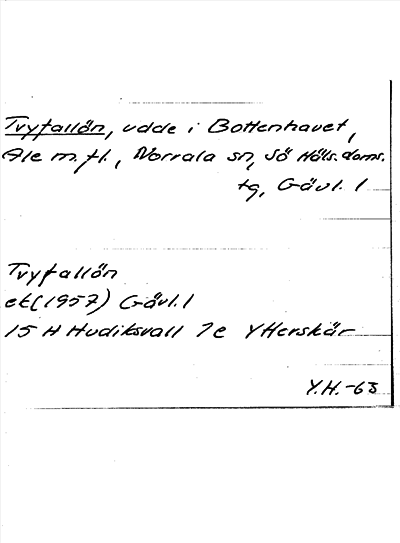 Tvyfallön, udde i Bottenhavet,
Ale m.fl., Norrala sn, Sö Häls. doms.
tg, Gävl. l
Tvyfallön
ek (1957) Gävl. l
15 H Hudiksvall 7e Ytterskär
Y.H. -63